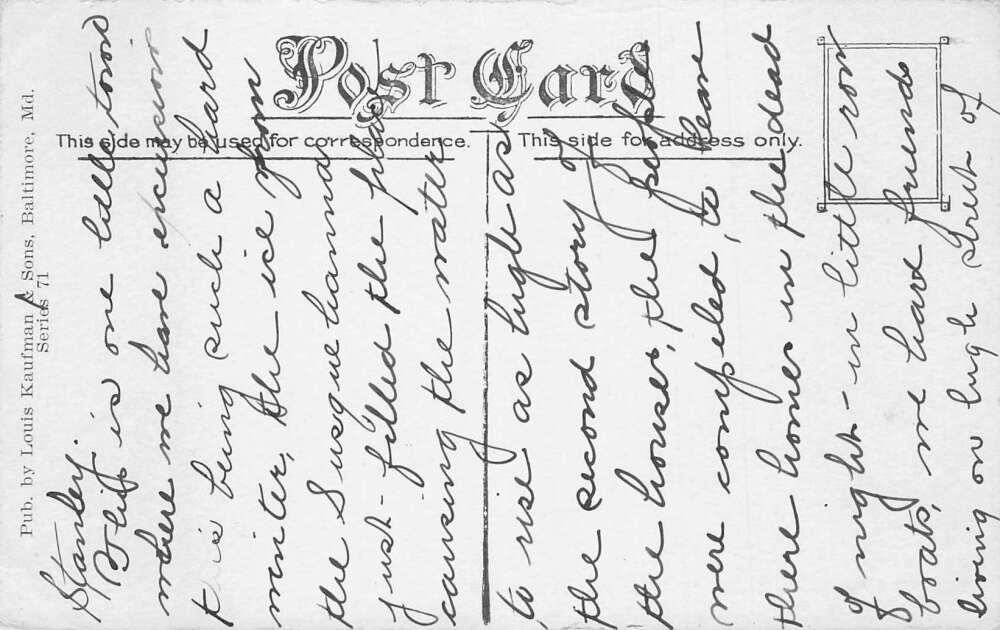 Post Card
This side may be used for correspondence.
This side for address only.
Pub. by Louis Kaufman & Sons, Baltimore, Md.
Series 71
Stanley.
This is one little town
where we have excursion
to is being such a hard
winter, the ice from
the Susquehanna
just filled the place
causing the water
to rise as high as
the second story of
the houses, the people
were compeled, to leave
there homes in the dead
of night - in little row
boats, we had friends
living on high street of